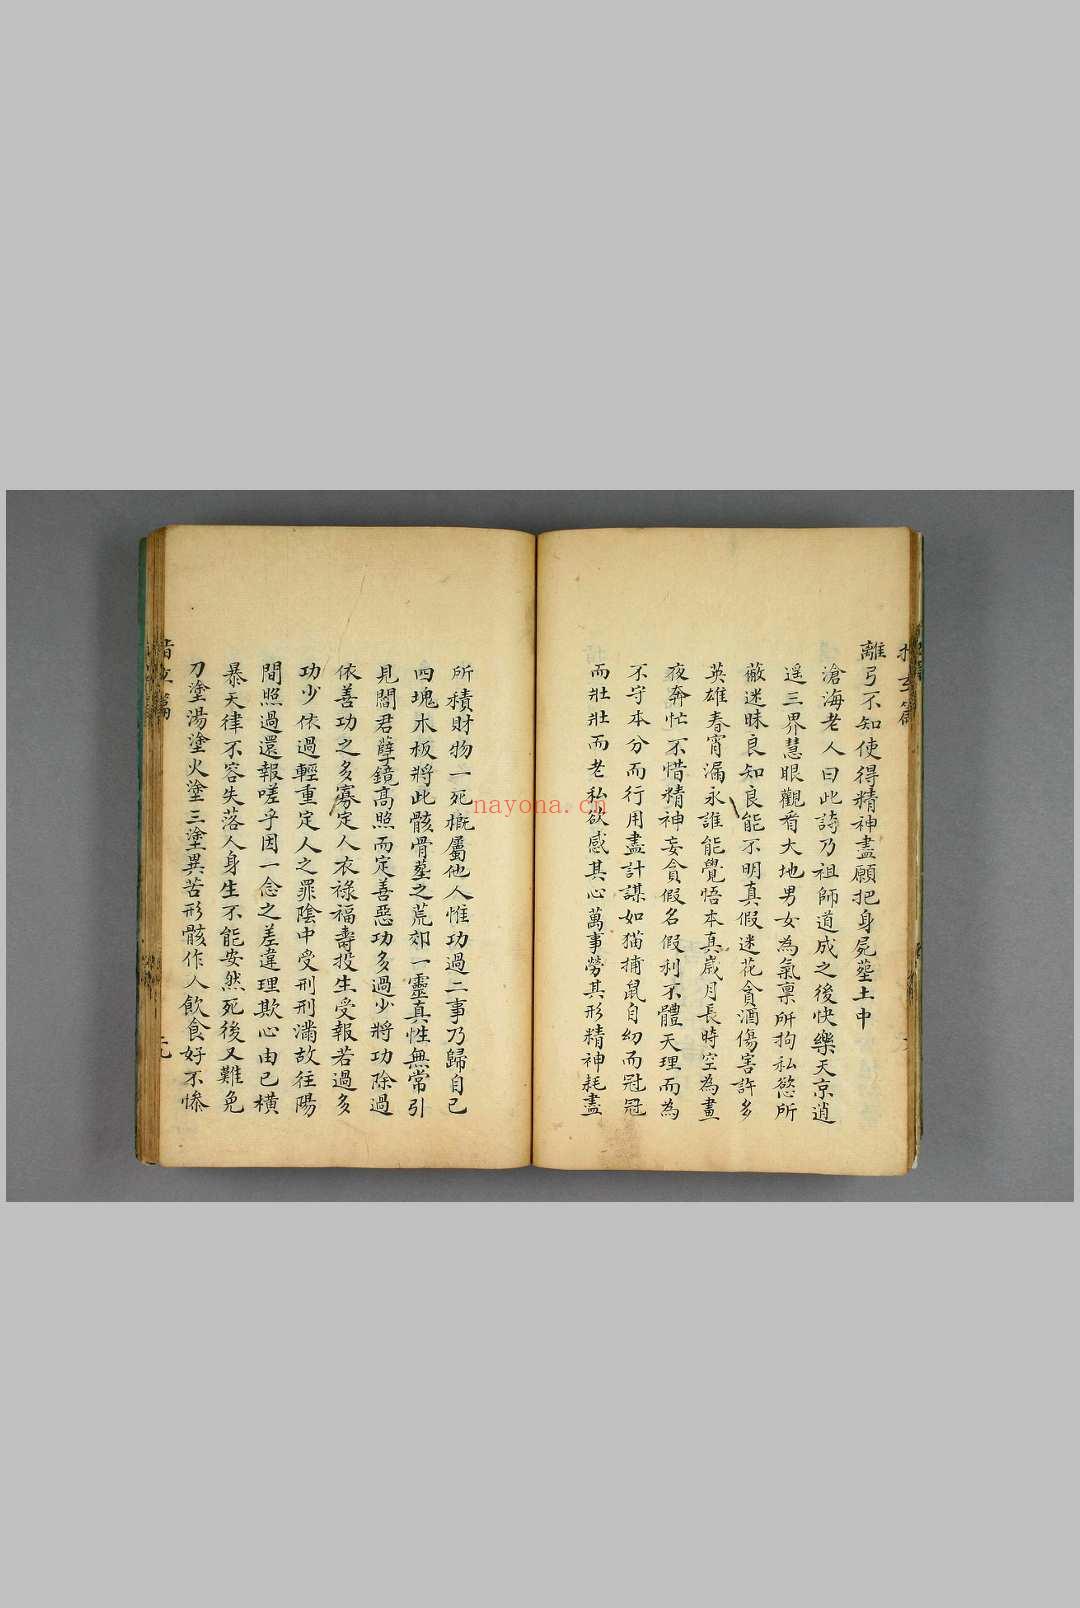 離弓不知使得精神盡願把身屍塟土中
滄海老人曰此詩乃祖師道成之後快樂天京逍
遥三界慧眼觀看大地男女為氣禀所拘私慾所
蔽迷昧良知良能不明真假迷花貪酒傷害許多
英雄春宵漏永誰能覺悟本真歲月長時空為晝
夜奔忙不惜精神妄貪假名假利不體天理而為
不守本分而行用盡計謀如猫捕鼠自幼而冠冠
而壯壯而老私欲惑其心萬事勞其形精神耗盡
所積財物一死概屬他人惟功過二事乃歸自己
四塊木板將此骸骨墓之荒郊一靈真性無常引
見閻君孽鏡高照而定善惡功多過少將功除過
依善功之多寡定人衣祿福壽投生受報若過多
功少依過輕重定人之罪陰中受刑刑滿故往陽
間照過還報嗟乎因一念之差違理欺心由己橫
暴天律不容失落人身生不能安然死後又難免
刀塗湯塗火塗三塗異苦形骸作人飲食好不慘
指玄篇
nayona.cn